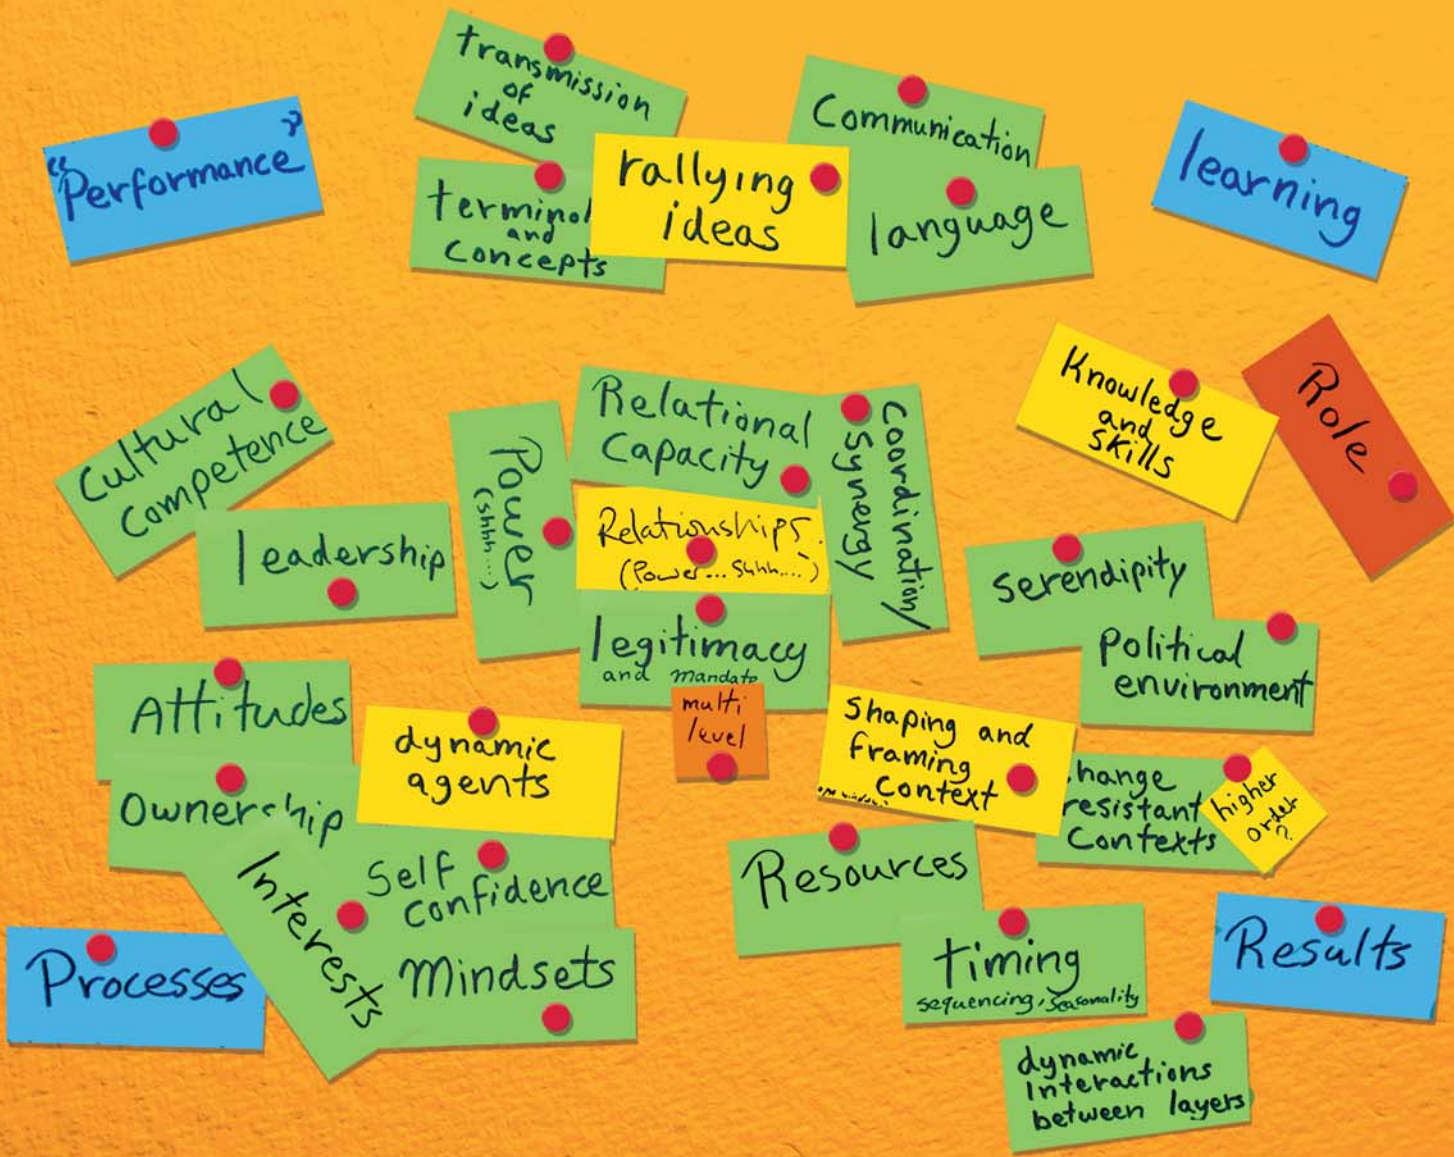 "Performance"
transmission
of
ideas
Communication
learning
rallying
ideas
terminol
and
Concepts
language
Cultural
Competence
leadership
Power
(shhh....)
Relational
Capacity
Relationships.
(Power... Shhh....)
legitimacy
and mandate
multi
level
Coordination/
Synergy
Knowledge
and
Skills
Role
serendipity
Political
environment
Attitudes
Ownership
dynamic
agents
Interests
Self
Confidence
Mindsets
Processes
Shaping and
framing
Context
hange
resistant
Contexts
higher
order
?
Resources
timing
sequencing, seasonality
Results
dynamic
Interactions
between layers